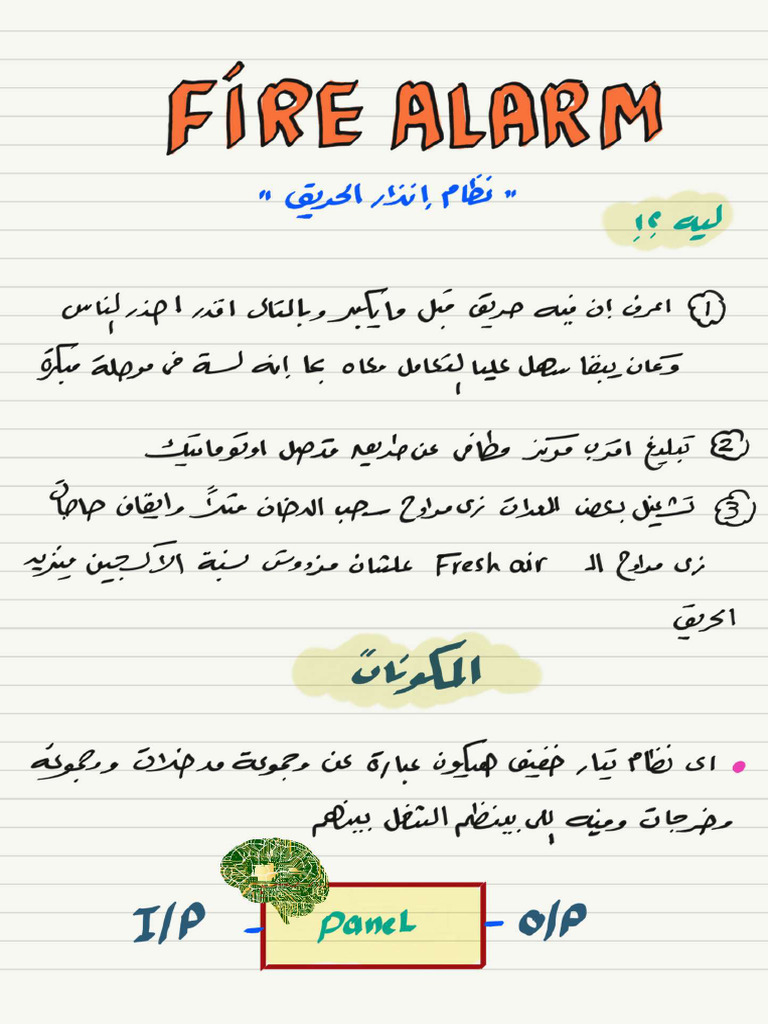 FIRE ALARM
" نظام إنذار الحريق "
ليه ؟!
① اعرف إن فيه حريق قبل ما يكبر وبالتالي اقدر احذر الناس
وكمان يبقا سهل عليا التعامل معاه بما إنه لسة في مرحلة مبكرة
② تبليغ اقرب مركز مطافي عن طريق متصل اوتوماتيك
③ تشغيل بعض المعدات زي مراوح سحب الدخان مثلاً وايقاف حاجات
زي مراوح الـ Fresh air علشان منزودش نسبة الاكسجين فيزيد
الحريق
المكونات
• اى نظام تيار خفيف هيكون عبارة عن مجموعة مدخلات ومجموعة
مخرجات ومنه اللي بينظم الشغل بينهم
I/P - Panel - O/P